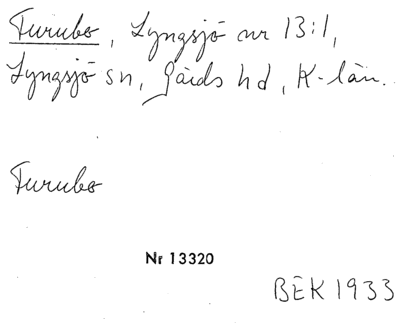 Furubo, Lyngsjö nr 13:1,
Lyngsjö sn, Gärds hd, K-län.
Furubo
Nr 13320
BEK 1933